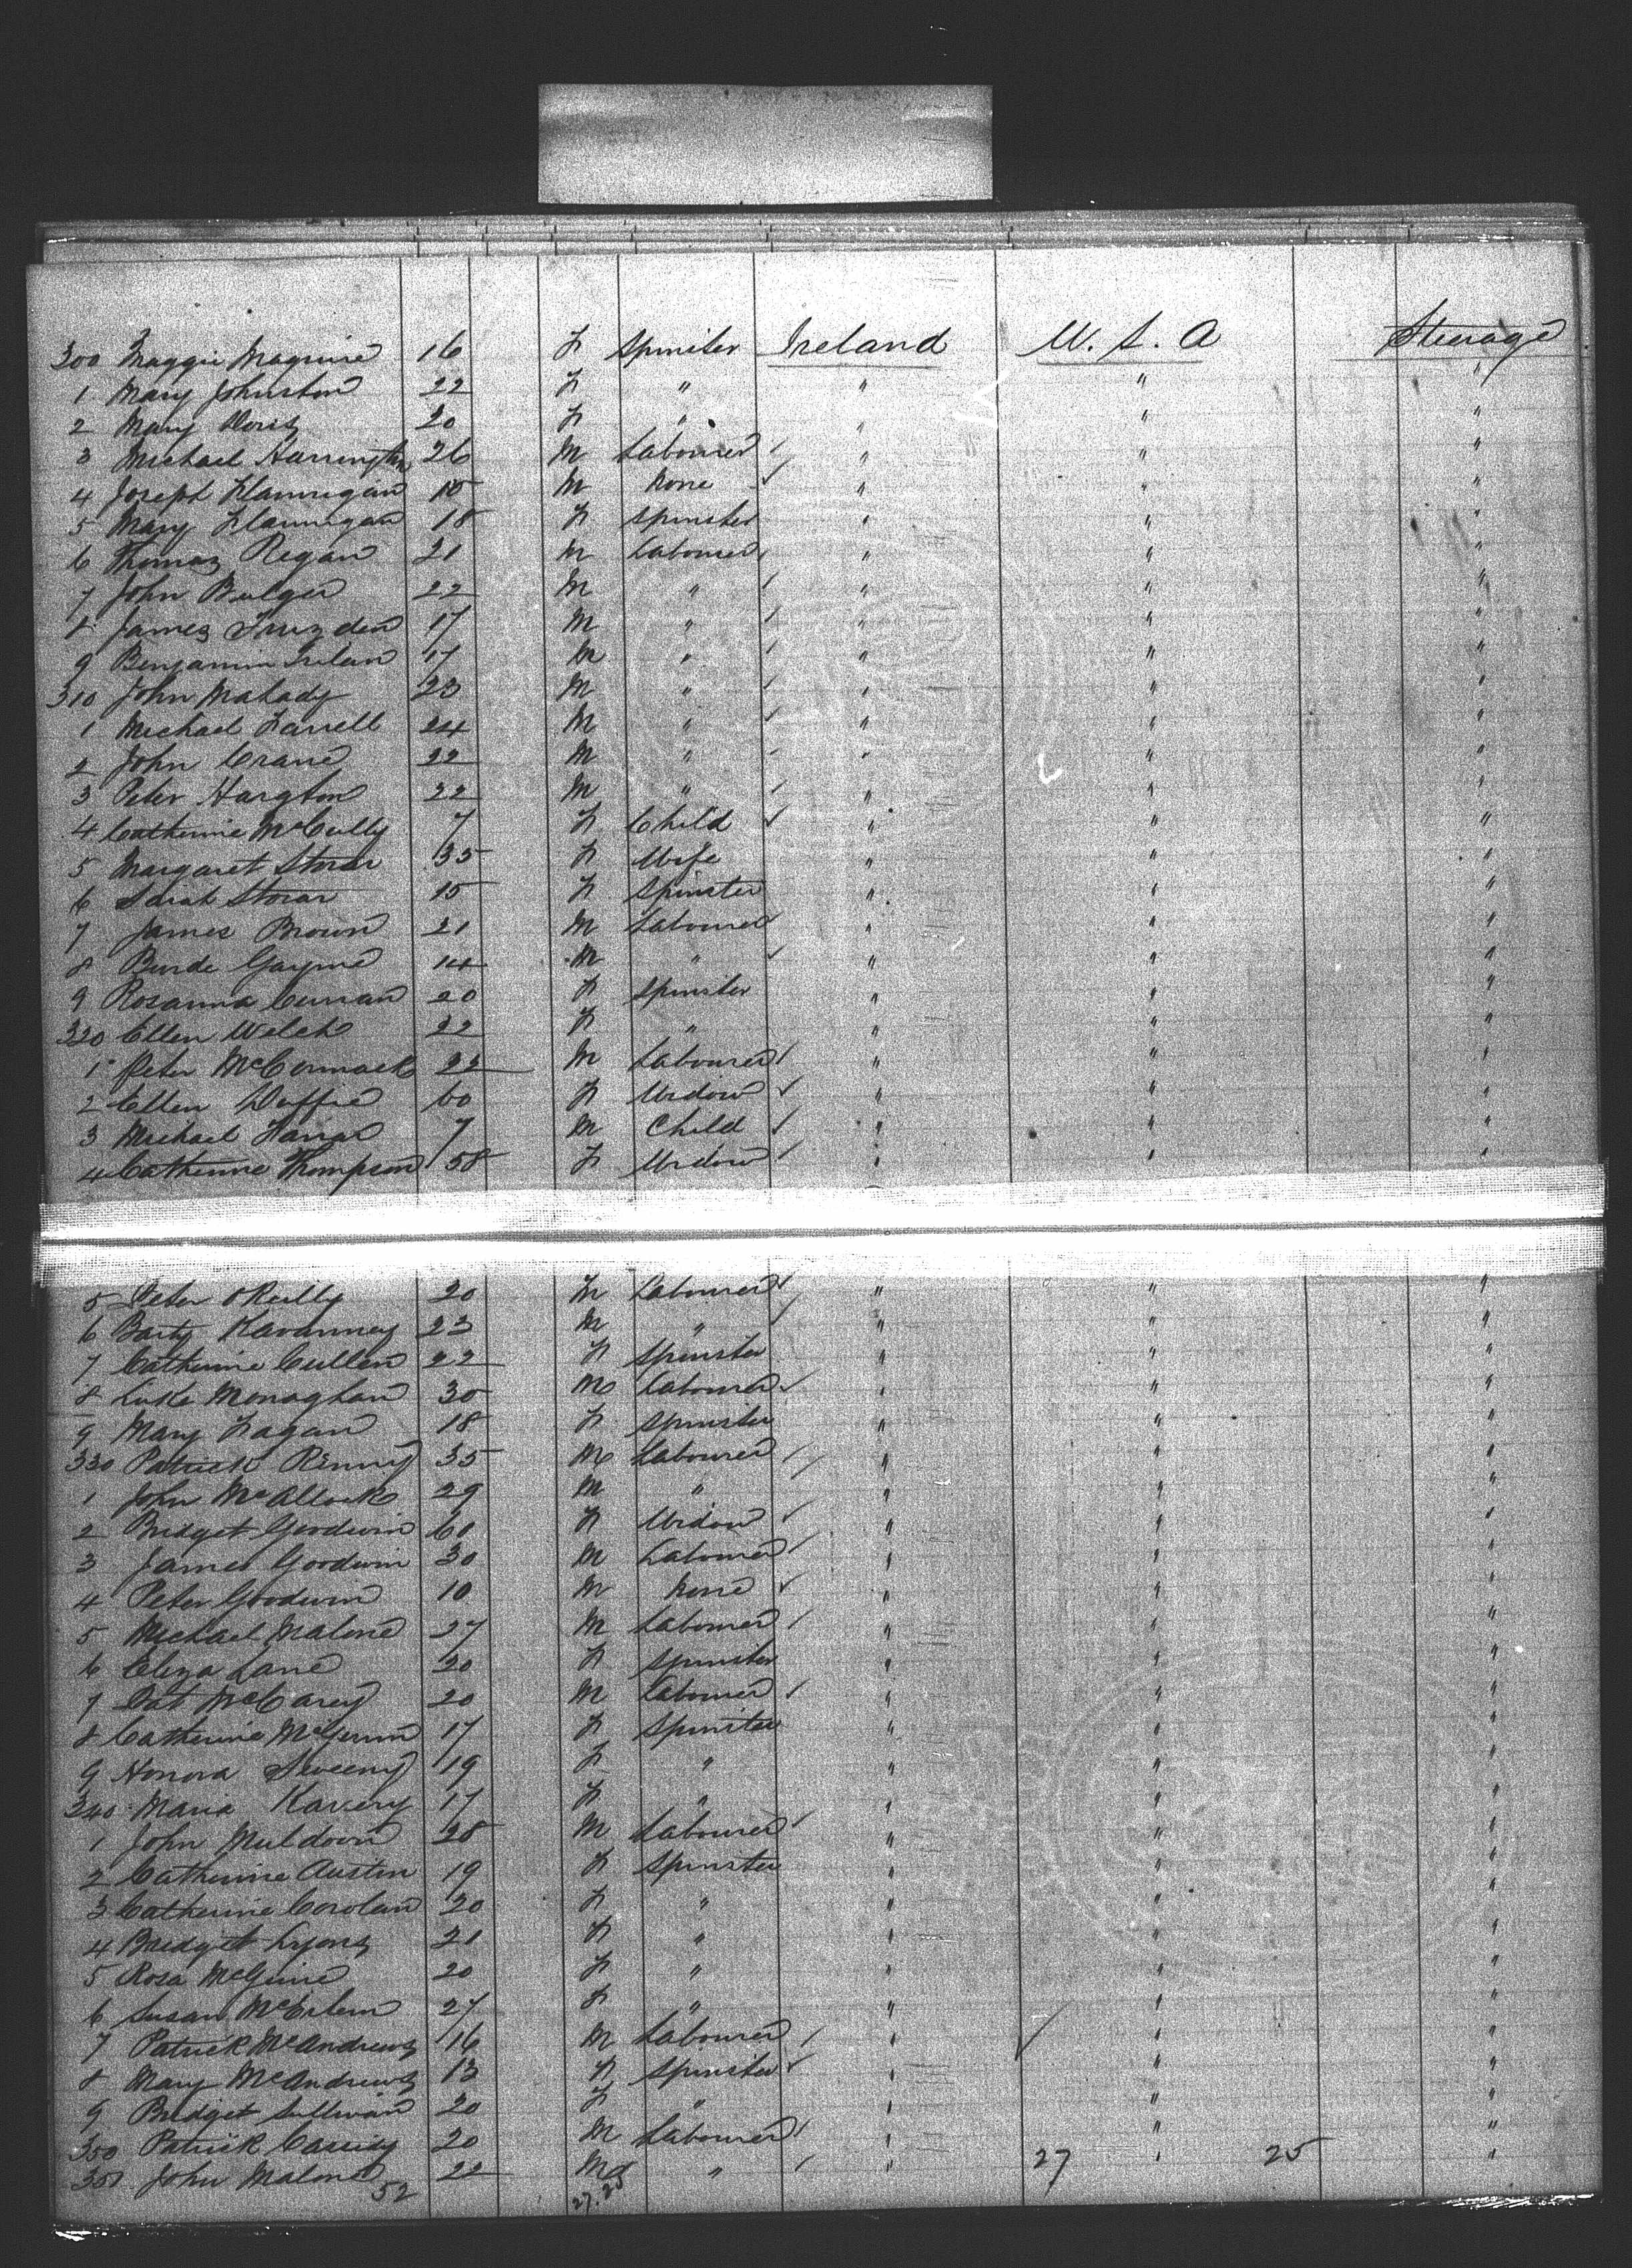 300 Maggie Maguire 16 F Spinster Ireland U. S. A Steerage
1 Mary Johnston 22 F " " " "
2 Mary 20 F " " " "
3 Michael Harrington 26 M Labourer " " "
4 Joseph Flannigan 10 M None " " "
5 Mary Flannigan 18 F Spinster " " "
6 Thomas Regan 21 M Labourer " " "
7 John Bulger 22 M " " " "
8 James 17 M " " " "
9 Benjamin 17 M " " " "
310 John Malady 23 M " " " "
1 Michael Farrell 24 M " " " "
2 John Crane 22 M " " " "
3 Peter Hargton 22 M " " " "
4 Catherine McCully 7 F Child " " "
5 Margaret Storar 35 F Wife " " "
6 Sarah Storar 15 F Spinster " " "
7 James Brown 21 M Labourer " " "
8 14 M " " " "
9 Rosanna Curran 20 F Spinster " " "
320 Ellen Welch 22 F " " " "
1 Peter McCormack 22 M Labourer " " "
2 Ellen Duffie 60 F Widow " " "
3 Michael 7 M Child " " "
4 Catherine Thompson 58 F Widow " " "
5 Peter OReilly 20 M Labourer " " "
6 Barty Kavanney 23 M " " " "
7 Catherine Cullen 22 F Spinster " " "
8 Luke Monaghan 30 M Labourer " " "
9 Mary Fagan 18 F Spinster " " "
330 Patrick Renny 35 M Labourer " " "
1 John 29 M " " " "
2 Bridget Goodwin 60 F Widow " " "
3 James Goodwin 30 M Labourer " " "
4 Peter Goodwin 10 M None " " "
5 Michael Malone 27 M Labourer " " "
6 Eliza Lane 20 F Spinster " " "
7 Pat McCarey 20 M Labourer " " "
8 Catherine 17 F Spinster " " "
9 Honora Sweeny 19 F " " " "
340 Maria 17 F " " " "
1 John Muldoon 28 M Labourer " " "
2 Catherine Austin 19 F Spinster " " "
3 Catherine Corolan 20 F " " " "
4 Bridget Lyons 21 F " " " "
5 Rosa McGuire 20 F " " " "
6 Susan 27 F " " " "
7 Patrick McAndrews 16 M Labourer " " "
8 Mary McAndrews 13 F Spinster " " "
9 Bridget Sullivan 20 F " " " "
350 Patrick Cassidy 20 M Labourer " " "
351 John Malone 22 M " " 27 " 25 "
52 27.25